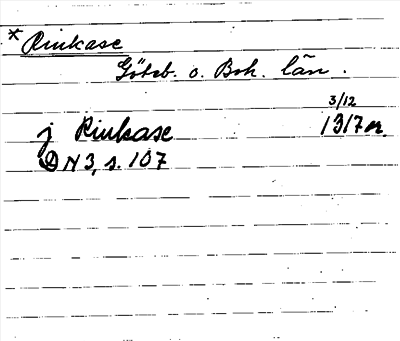 * Rinkase
Göteb. o. Boh. län.
3/12
j Rinkase 1317 m.
DN 3, s. 107